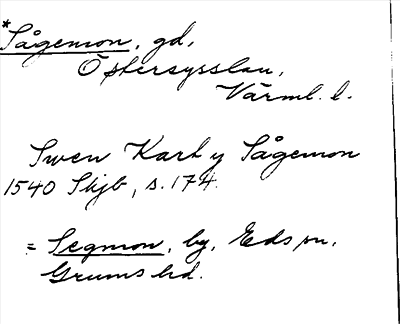 *Sågemon, gd,
Östersysslan,
Värml. l.
Swen Karl y Sågemon
1540 Skjb, s. 174.
= Segmon, by, Eds sn,
Grums hd.